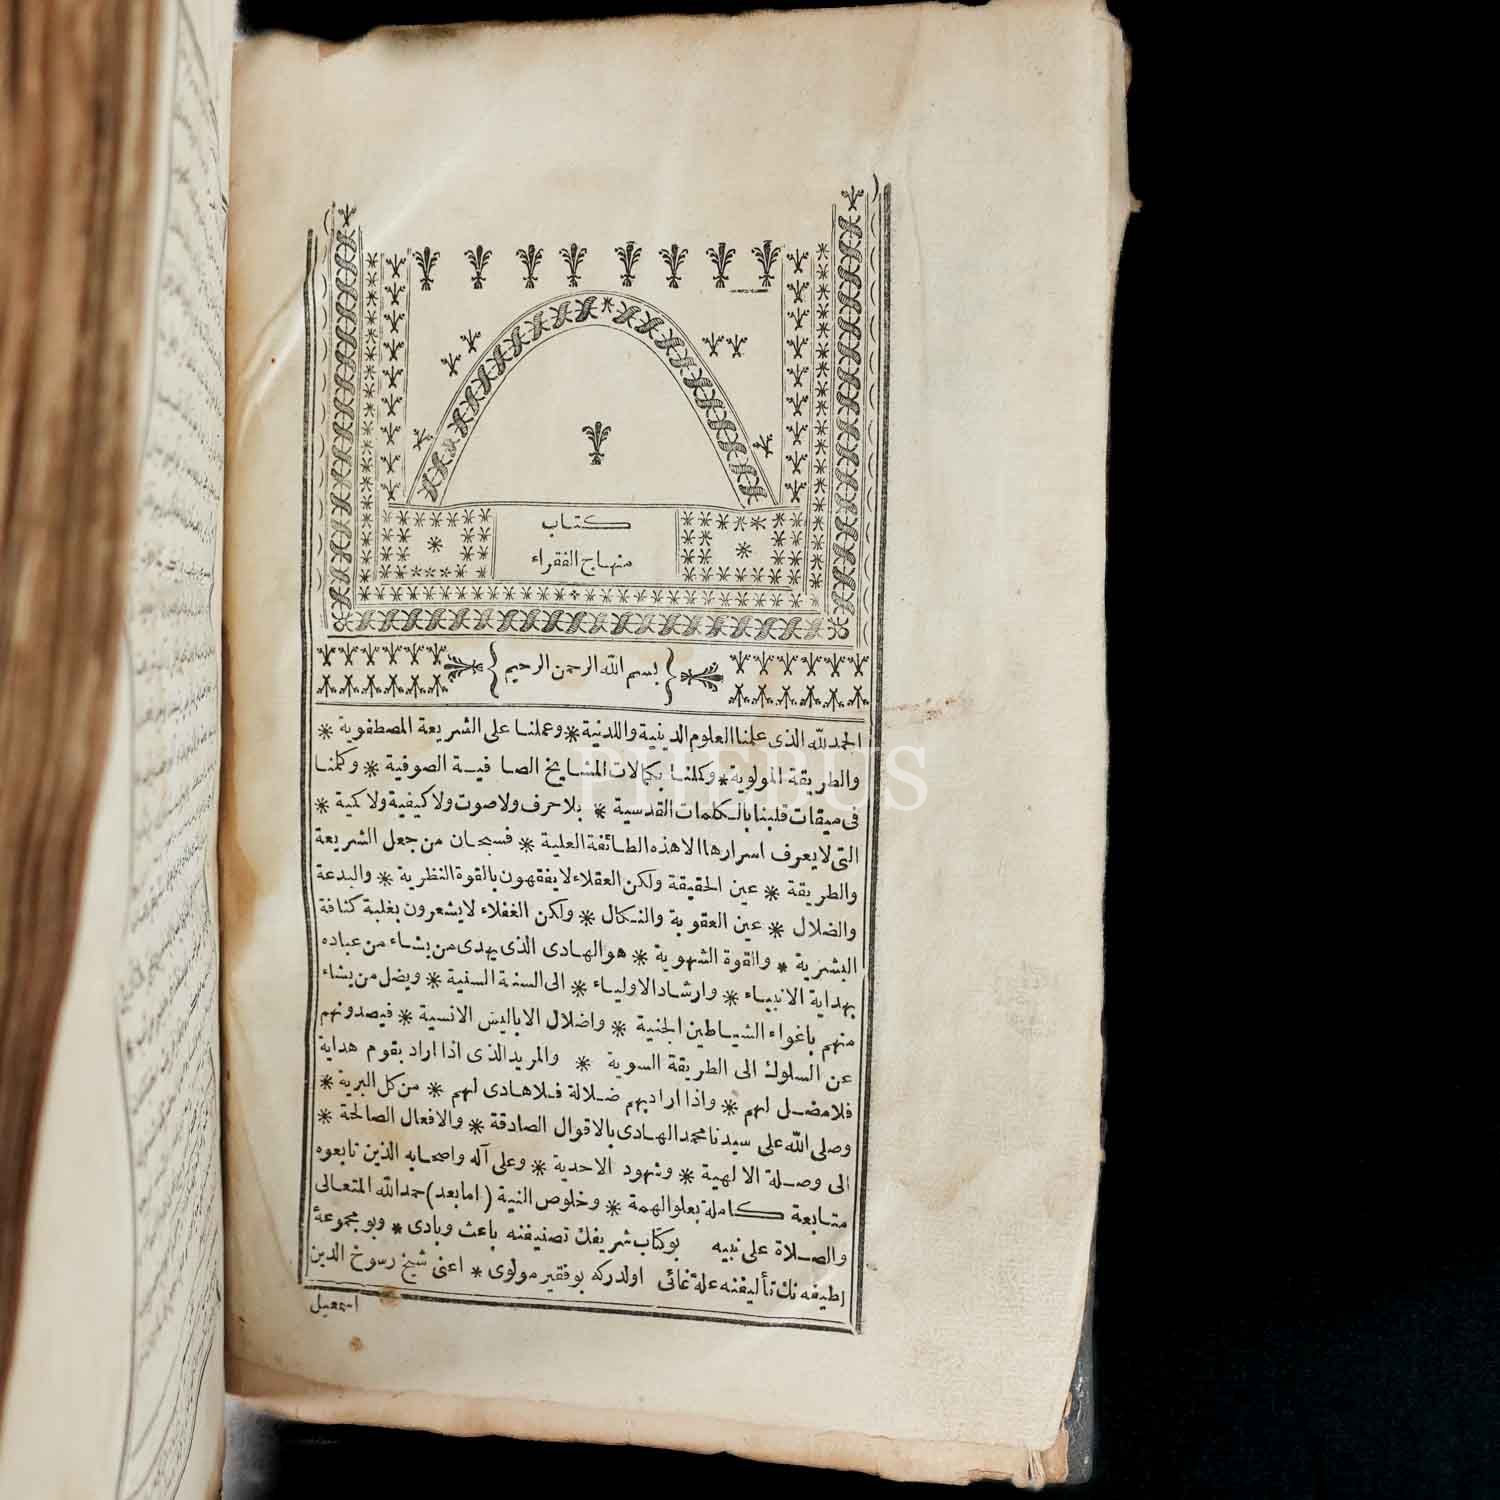 كتاب
منهاج الفقراء
بسم الله الرحمن الرحيم
الحمد لله الذى علمنا العلوم الدينية واللدنية * وعملنا على الشريعة المصطفوية *
والطريقة المولوية * وكملنا بكمالات المشايخ الصافية الصوفية * وكلمنا
فى ميقات قلبنا بالكلمات القدسية * بلا حرف ولا صوت ولا كيفية ولا كمية *
التى لا يعرف اسرارها الا هذه الطائفة العلية * فسبحان من جعل الشريعة
والطريقة * عين الحقيقة ولكن العقلاء لا يفقهون بالقوة النظرية * والبدعة
والضلال * عين العقوبة والنكال * ولكن الغفلاء لا يشعرون بغلبة كثافة
البشرية * والقوة الشهوية * هو الهادى الذى يهدى من يشاء من عباده
بهداية الانبياء * وارشاد الاولياء * الى السنة السنية * ويضل من يشاء
منهم باغواء الشياطين الجنية * واضلال الاباليس الانسية * فيصدونهم
عن السلوك الى الطريقة السوية * والمريد الذى اذا اراد بقوم هداية
فلا مضل لهم * واذا اراد بهم ضلالة فلا هادى لهم * من كل البرية *
وصلى الله على سيدنا محمد الهادى بالاقوال الصادقة * والافعال الصالحة *
الى وصلة الالهية * وشهود الاحدية * وعلى آله واصحابه الذين تابعوه
متابعة كاملة بعلو الهمة * وخلوص النية (اما بعد) حمد الله المتعالى
والصلاة على نبيه بو كتاب شريفك تصنيفنه باعث وبادى * وبو مجموعۀ
لطيفه نك تأليفنه علۀ غائى اولدركه بو فقير مولوى * اعنى شيخ رسوخ الدين
اسمعيل
PHEBUS